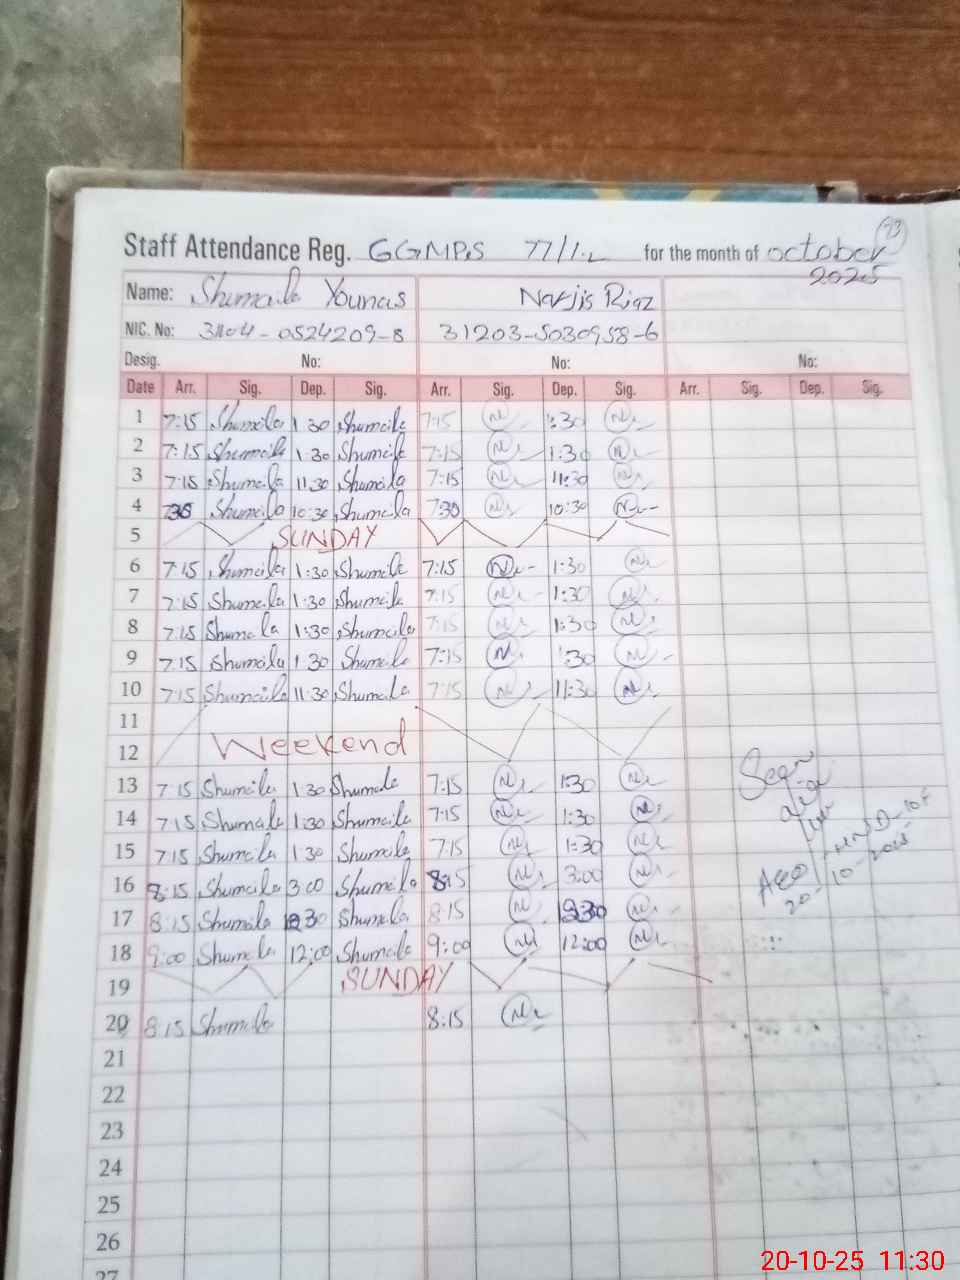 43
Staff Attendance Reg. GGMPS 77/1.L for the month of october
2025
Name: Shumaila Younas Narjis Riaz
NIC. No: 31104-0524209-8 31203-5030958-6
Desig. No: No: No:
Date Arr. Sig. Dep. Sig. Arr. Sig. Dep. Sig. Arr. Sig. Dep. Sig.
1 7:15 Shumaila 1 30 Shumaila 7:15 1:30
2 7:15 Shumaila 1:30 Shumaila 7:15 1:30
3 7:15 Shumaila 11:30 Shumaila 7:15 11:30
4 7:30 Shumaila 10:30 Shumaila 7:30 10:30
5 SUNDAY
6 7:15 Shumaila 1:30 Shumaila 7:15 1:30
7 7:15 Shumaila 1:30 Shumaila 7:15 1:30
8 7:15 Shumaila 1:30 Shumaila 7:15 1:30
9 7:15 Shumaila 1 30 Shumaila 7:15 1:30
10 7:15 Shumaila 11:30 Shumaila 7:15 11:30
11
12 Weekend
13 7:15 Shumaila 1 30 Shumaila 7:15 1:30
14 7:15 Shumaila 1:30 Shumaila 7:15 1:30
15 7:15 Shumaila 1:30 Shumaila 7:15 1:30
16 8:15 Shumaila 3:00 Shumaila 8:15 3:00
17 8:15 Shumaila Shumaila 8:15
18 9:00 Shumaila 12:00 Shumaila 9:00 12:00
19 SUNDAY
20 8:15 Shumaila 8:15
21
22
23
24
25
26
27
Seen
AEO
20-10-2025
20-10-25 11:30